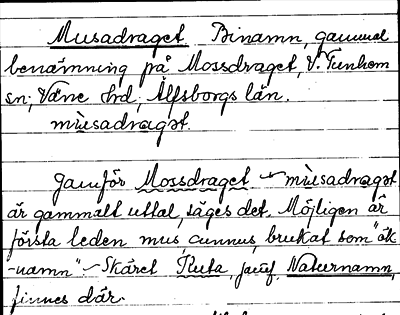 Musadraget. Binamn, gammal
benämning på Mossdraget, V. Tunhem
sn, Väne hrd, Älfsborgs län.
mùsadragət.
Jämför Mossdraget ~ mùsadragət
är gammalt uttal, säges det. Möjligen är
första leden mus cunnus, brukat som "ök-
-namn" ~ Skäret Kuta, jämf. Naturnamn,
finnes där.